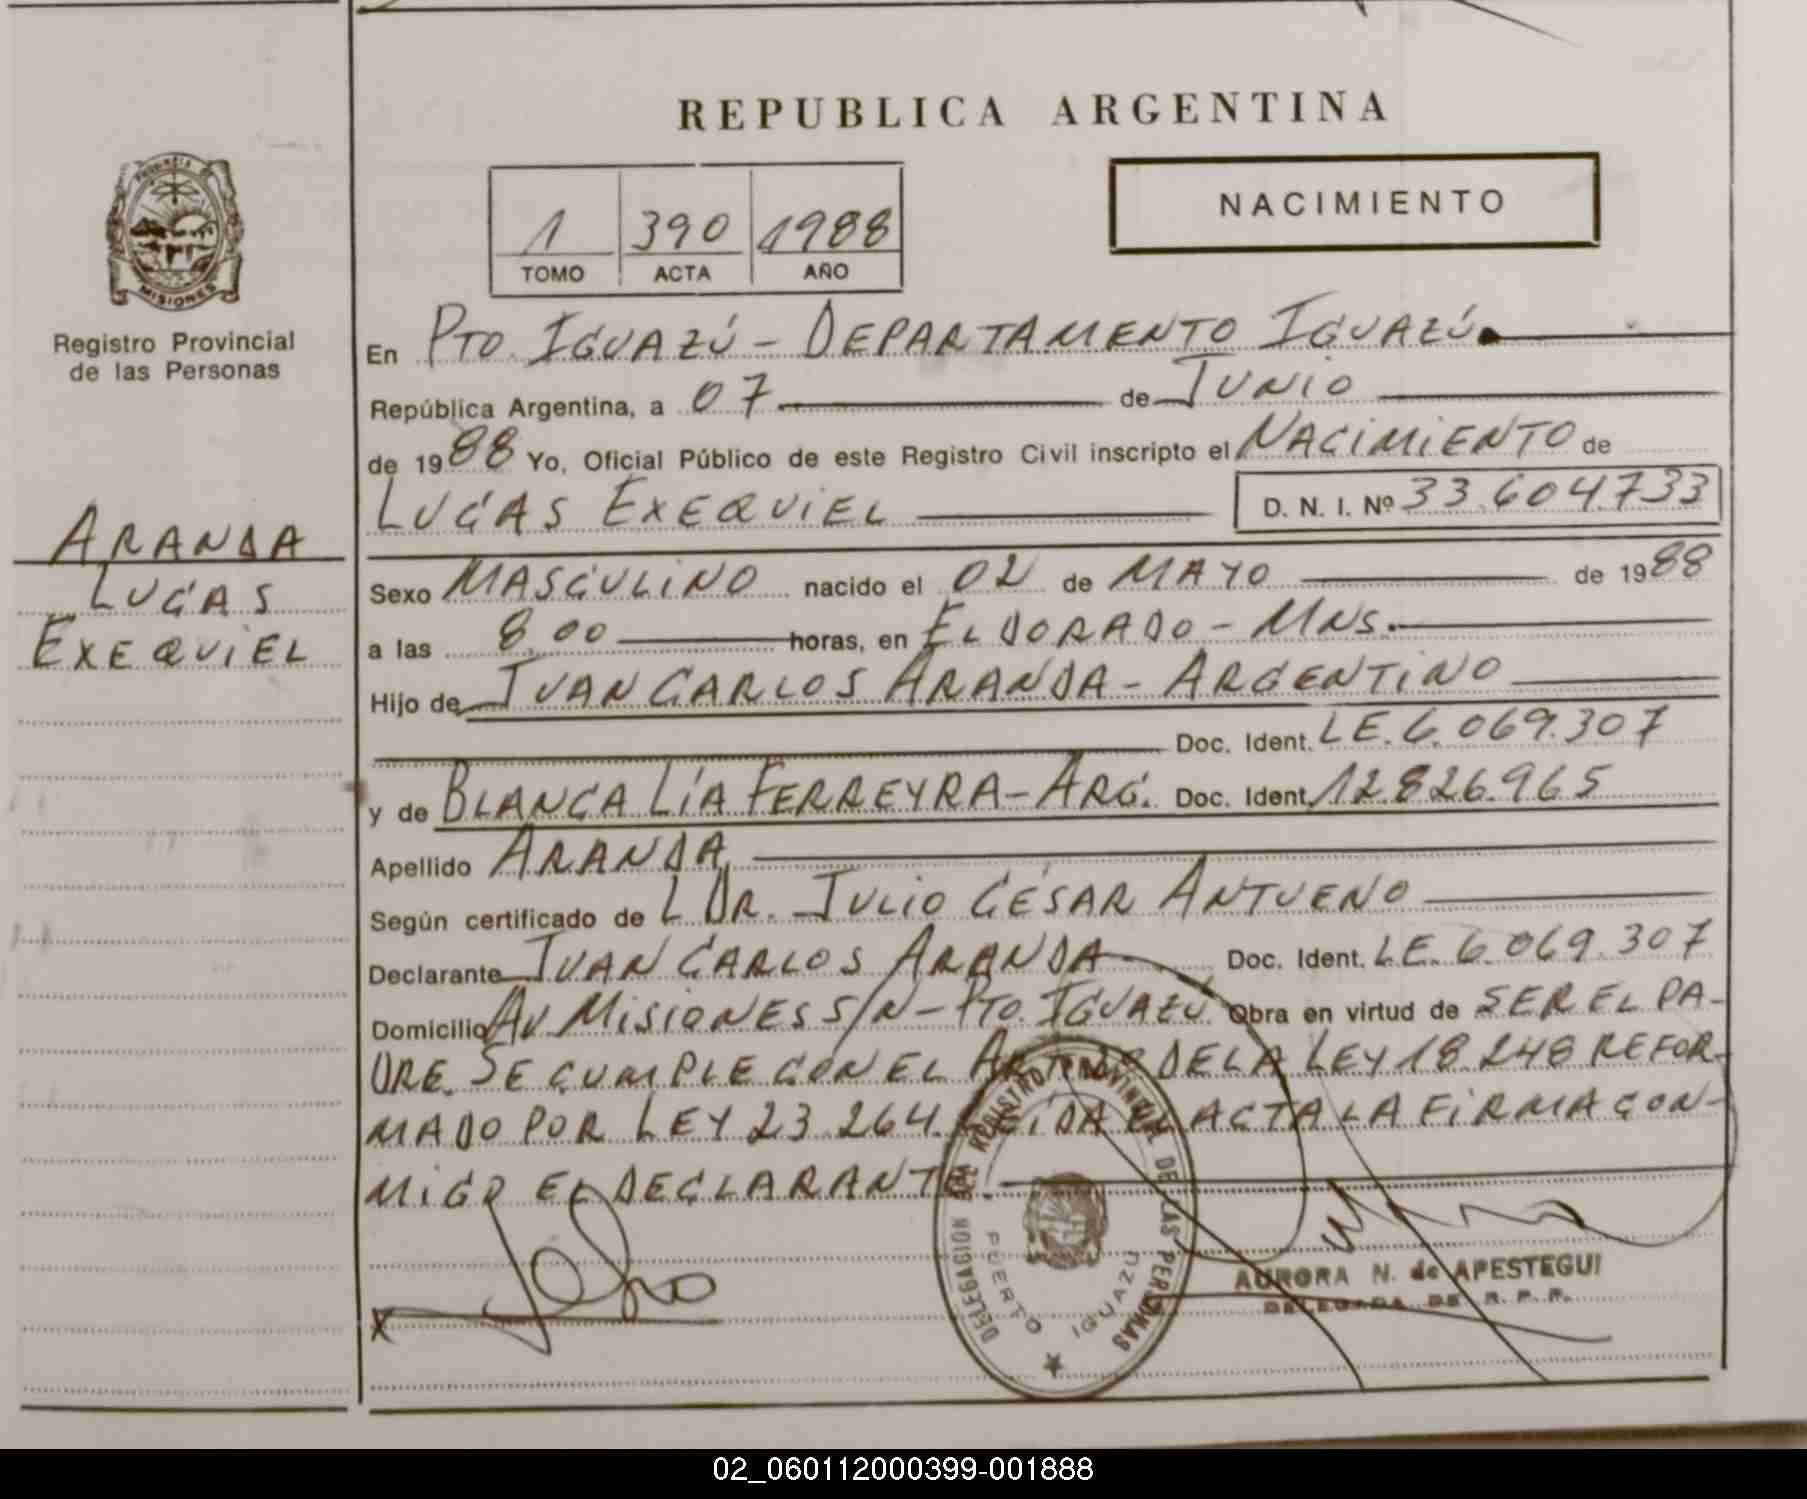 REPUBLICA ARGENTINA
NACIMIENTO
1 390 1988
TOMO ACTA AÑO
PROVINCIA DE
MISIONES
Registro Provincial
de las Personas
ARANDA
LUCAS
EXEQUIEL
En PTO. IGUAZÚ - DEPARTAMENTO IGUAZÚ
República Argentina, a 07 de JUNIO
de 1988 Yo, Oficial Público de este Registro Civil inscripto el NACIMIENTO de
LUCAS EXEQUIEL D. N. I. Nº 33.604.733
Sexo MASCULINO nacido el 02 de MAYO de 1988
a las 8.00 horas, en ELDORADO - MNS.
Hijo de JUAN CARLOS ARANDA - ARGENTINO
Doc. Ident. LE. 6.069.307
y de BLANCA LÍA FERREYRA - ARG. Doc. Ident. 12.826.965
Apellido ARANDA
Según certificado de L DR. JULIO CÉSAR ANTUENO
Declarante JUAN CARLOS ARANDA Doc. Ident. LE. 6.069.307
Domicilio AV MISIONES S/N - PTO. IGUAZÚ Obra en virtud de SER EL PA-
DRE. SE CUMPLE CON EL DE LA LEY 18.248 REFOR-
MADO POR LEY 23.264. LEÍDA EL ACTA LA FIRMA CON-
MIGO EL DECLARANTE.
DELEGACION DEL REGISTRO PROVINCIAL DE LAS PERSONAS
PUERTO IGUAZU
AURORA N. de APESTEGUI
DELEGADA DE R. P. P.
X
02_060112000399-001888